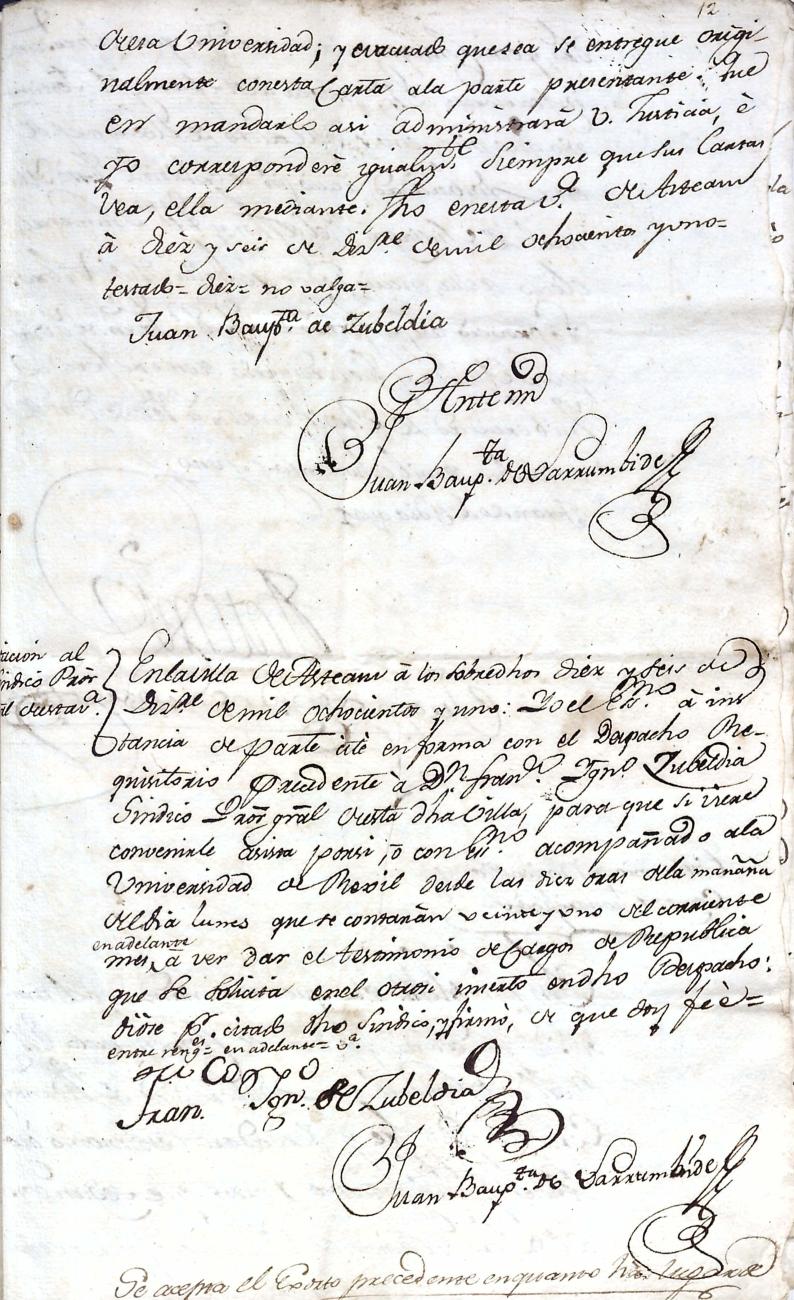 12
desta Universidad; y evacuado que sea se entregue origi-
nalmente con esta Carta ala parte presentante. Que
en mandarlo asi administrará V. Justicia, è
yo corresponderè igualmte. siempre que sus Cartas
vea, ella mediante. fho en esta va. de Asteasu
à diez y seis de Dizre de mil ochocientos y uno=
testado= diez= no valga=
Juan Baupta. de Zubeldia
Ante mi
Juan Baupta. de Larrumbide
En la villa de Asteasu à los sobredhos diez y seis de
Dizre de mil ochocientos y uno: Yo el Essno. à ins
tancia de parte citè en forma con el Despacho Re-
quisitorio precedente à Dn. Franco. Ygno. Zubeldia
Sindico Pror. gral desta dha Villa, para que si viere
convenirle asista por si, ò con essno. acompañado ala
Universidad de Rexil desde las diez oras dela mañana
del dia lunes que se contaràn veinte y uno del corriente
en adelante
mes, à ver dar el testimonio de Cargos de Republica
que se solicita en el otrosi inserto en dho Despacho:
diòse pr. citado dho Sindico, y firmò, de que doy feè=
entre rengs= en adelante= va.
Franco. Ygno. de Zubeldia
Juan Baupta. de Larrumbide
tacion al
Sindico Pror
al desta va.
Se acepta el Exorto precedente en quanto ha lugar de